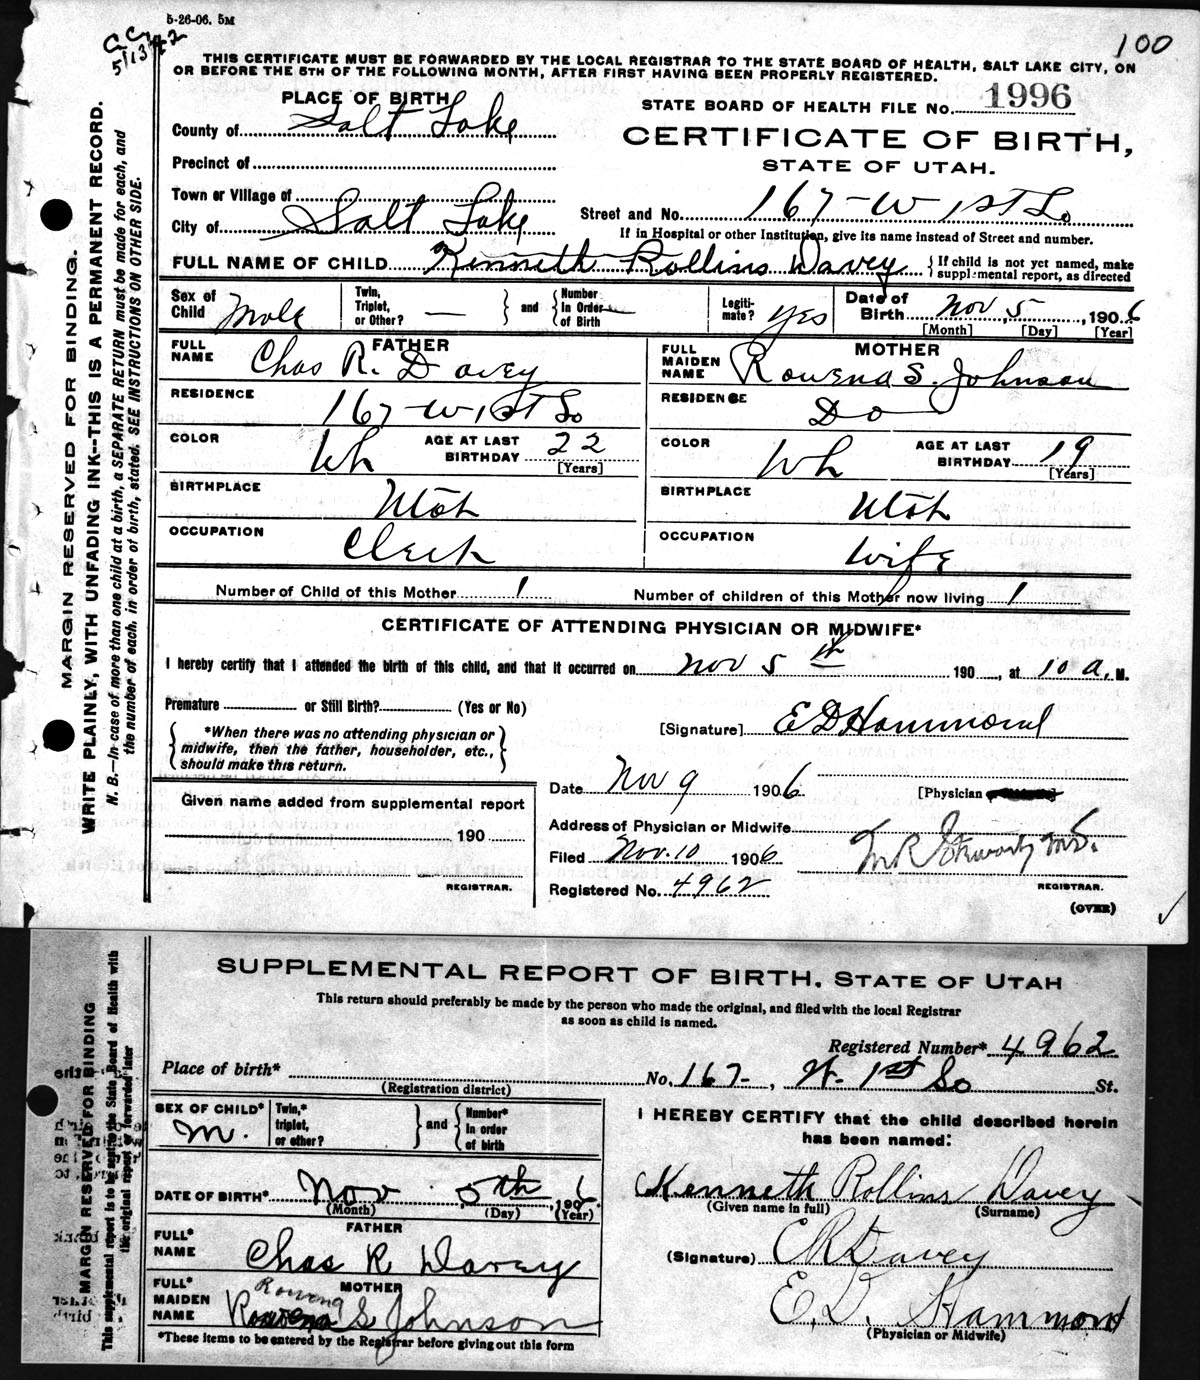 5-26-06. 5M
C.C.
5/13/42
100
THIS CERTIFICATE MUST BE FORWARDED BY THE LOCAL REGISTRAR TO THE STATE BOARD OF HEALTH, SALT LAKE CITY, ON
OR BEFORE THE 5TH OF THE FOLLOWING MONTH, AFTER FIRST HAVING BEEN PROPERLY REGISTERED.
MARGIN RESERVED FOR BINDING.
WRITE PLAINLY, WITH UNFADING INK--THIS IS A PERMANENT RECORD.
N. B.—In case of more than one child at a birth, a SEPARATE RETURN must be made for each, and
the number of each, in order of birth, stated. SEE INSTRUCTIONS ON OTHER SIDE.
PLACE OF BIRTH
County of Salt Lake
Precinct of
Town or Village of
City of Salt Lake
STATE BOARD OF HEALTH FILE No. 1996
CERTIFICATE OF BIRTH,
STATE OF UTAH.
Street and No. 167-W 1st So
If in Hospital or other Institution, give its name instead of Street and number.
FULL NAME OF CHILD Kenneth Rollins Davey { If child is not yet named, make
supplemental report, as directed
Sex of Child Male
Twin, Triplet, or Other? — } and { Number in Order of Birth —
Legitimate? yes
Date of Birth Nov 5, 1906
[Month] [Day] [Year]
FATHER
FULL NAME Chas R. Davey
RESIDENCE 167-W 1st So
COLOR Wh AGE AT LAST BIRTHDAY 22
[Years]
BIRTHPLACE Utah
OCCUPATION Clerk
MOTHER
FULL MAIDEN NAME Rowena S. Johnson
RESIDENCE Do
COLOR Wh AGE AT LAST BIRTHDAY 19
[Years]
BIRTHPLACE Utah
OCCUPATION Wife
Number of Child of this Mother 1 Number of children of this Mother now living 1
CERTIFICATE OF ATTENDING PHYSICIAN OR MIDWIFE*
I hereby certify that I attended the birth of this child, and that it occurred on Nov 5th 190, at 10 a. M.
Premature or Still Birth? (Yes or No)
{ *When there was no attending physician or
midwife, then the father, householder, etc.,
should make this return. }
[Signature] E D Hammond
Date Nov 9 1906 [Physician
Given name added from supplemental report
190
REGISTRAR.
Address of Physician or Midwife
Filed Nov. 10 1906
Registered No. 4962
M.D.
REGISTRAR.
(OVER)
SUPPLEMENTAL REPORT OF BIRTH, STATE OF UTAH
This return should preferably be made by the person who made the original, and filed with the local Registrar
as soon as child is named.
MARGIN RESERVED FOR BINDING
This supplemental report is to be sent to the State Board of Health with
the original report or forwarded later
Registered Number* 4962
Place of birth* No. 167-, W. 1st So St.
(Registration district)
SEX OF CHILD* M.
Twin,* triplet, or other? } and { Number* in order of birth
DATE OF BIRTH* Nov 5th, 1906
(Month) (Day) (Year)
FATHER
FULL* NAME Chas R Davey
MOTHER
Rowena
FULL* MAIDEN NAME Rowena S Johnson
*These items to be entered by the Registrar before giving out this form
I HEREBY CERTIFY that the child described herein
has been named:
Kenneth Rollins Davey
(Given name in full) (Surname)
(Signature) C R Davey
E. D. Hammond
(Physician or Midwife)